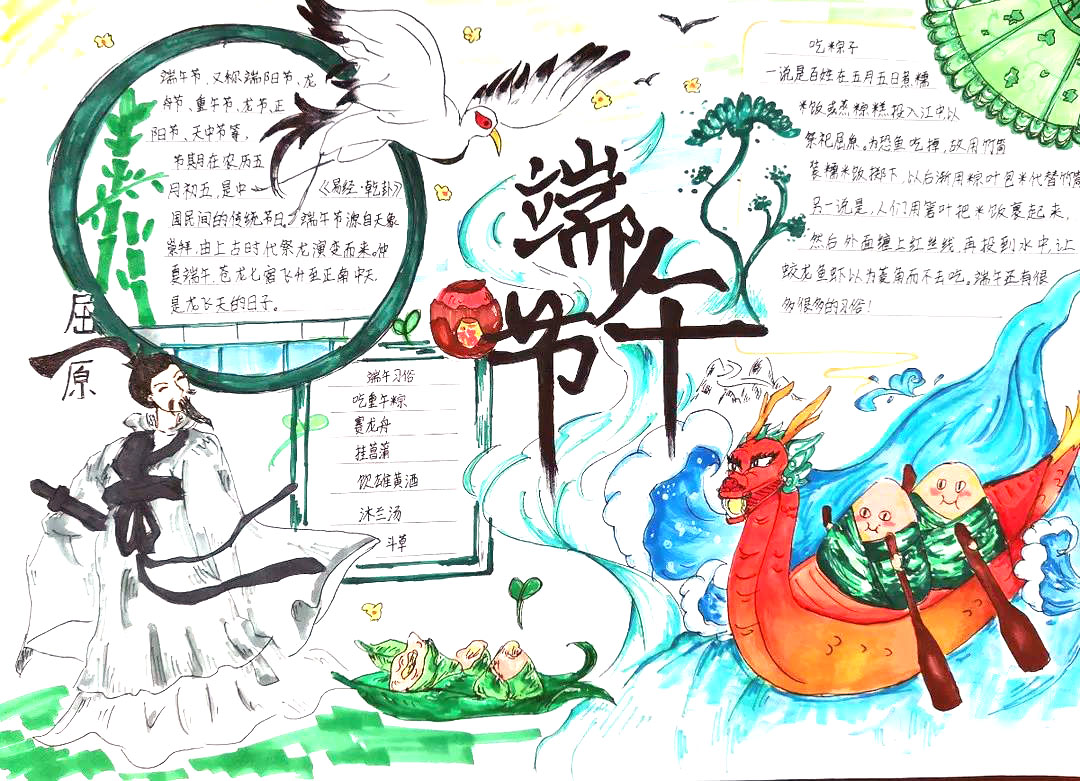 端午节
端午节、又称端阳节、龙
舟节、重午节、龙节、正
阳节、天中节等，
节期在农历五
月初五，是中
《易经·乾卦》
国民间的传统节日。端午节源自天象
崇拜，由上古时代祭龙演变而来。仲
夏端午，苍龙七宿飞升至正南中天，
是龙飞天的日子。
屈
原
端午习俗
吃重午粽
赛龙舟
挂菖蒲
饮雄黄酒
沐兰汤
斗草
吃粽子
一说是百姓在五月五日煮糯
米饭或蒸粽糕投入江中以
祭祀屈原。为恐鱼吃掉，故用竹筒
装糯米饭掷下，以后渐用粽叶包米代替竹筒
另一说是，人们用箬叶把米饭裹起来，
然后外面缠上红丝线，再投到水中，让
蛟龙鱼虾以为菱角而不去吃。端午还有很
多很多的习俗！